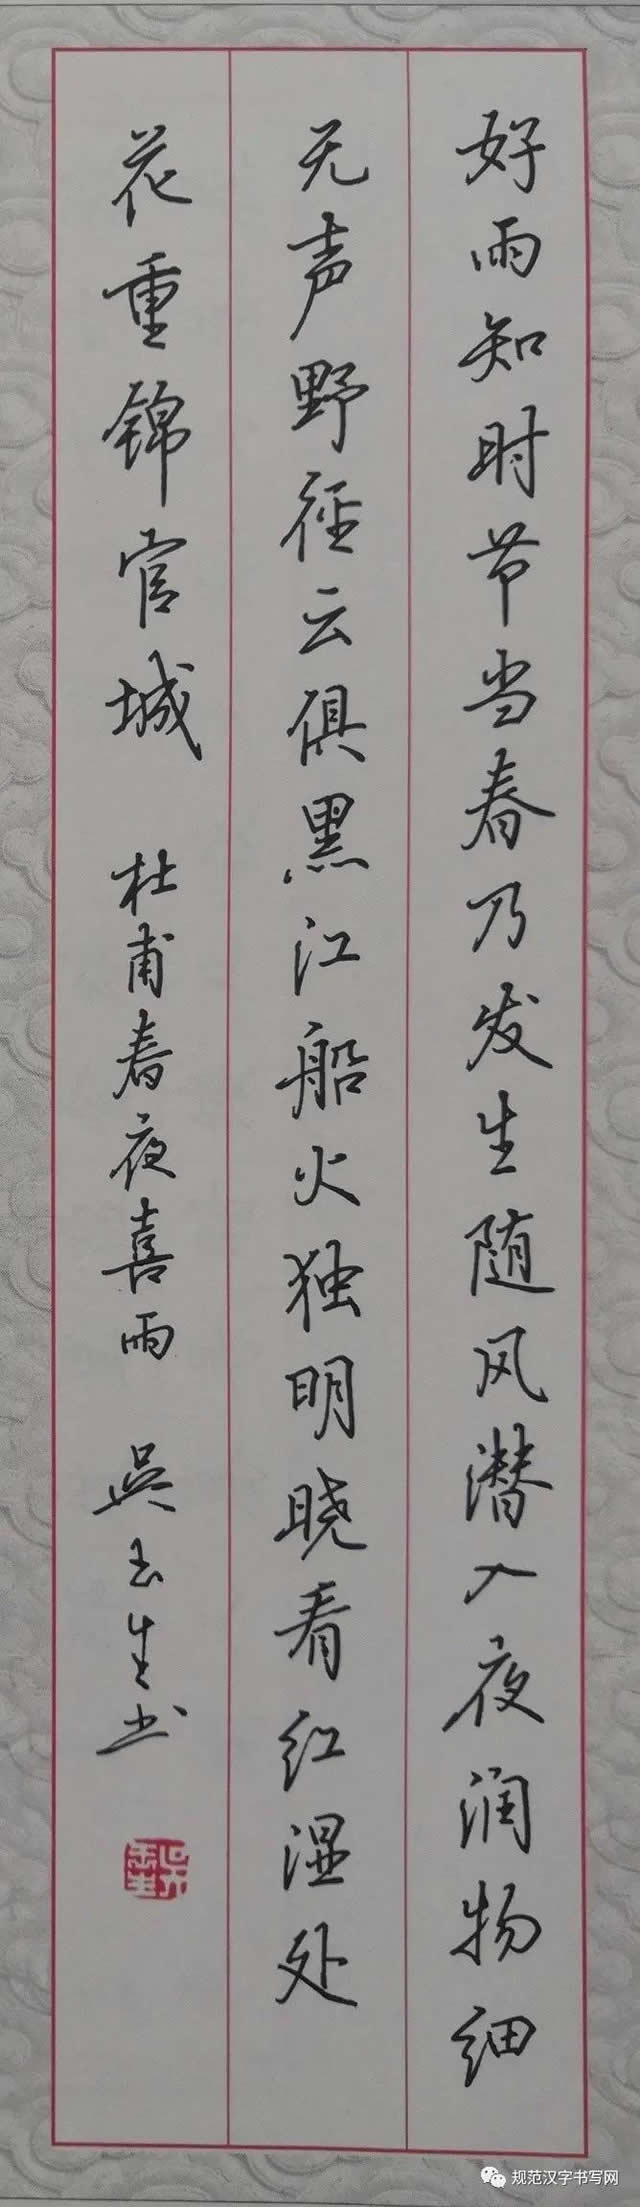 好雨知时节当春乃发生随风潜入夜润物细
无声野径云俱黑江船火独明晓看红湿处
花重锦官城 杜甫春夜喜雨 吴玉生书
吴玉生
规范汉字书写网